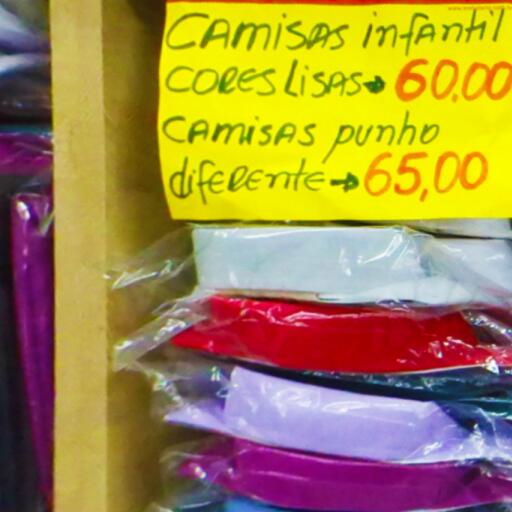 CAMISAS infantil
CORES LISAS → 60,00
CAMISAS punho
diferente → 65,00